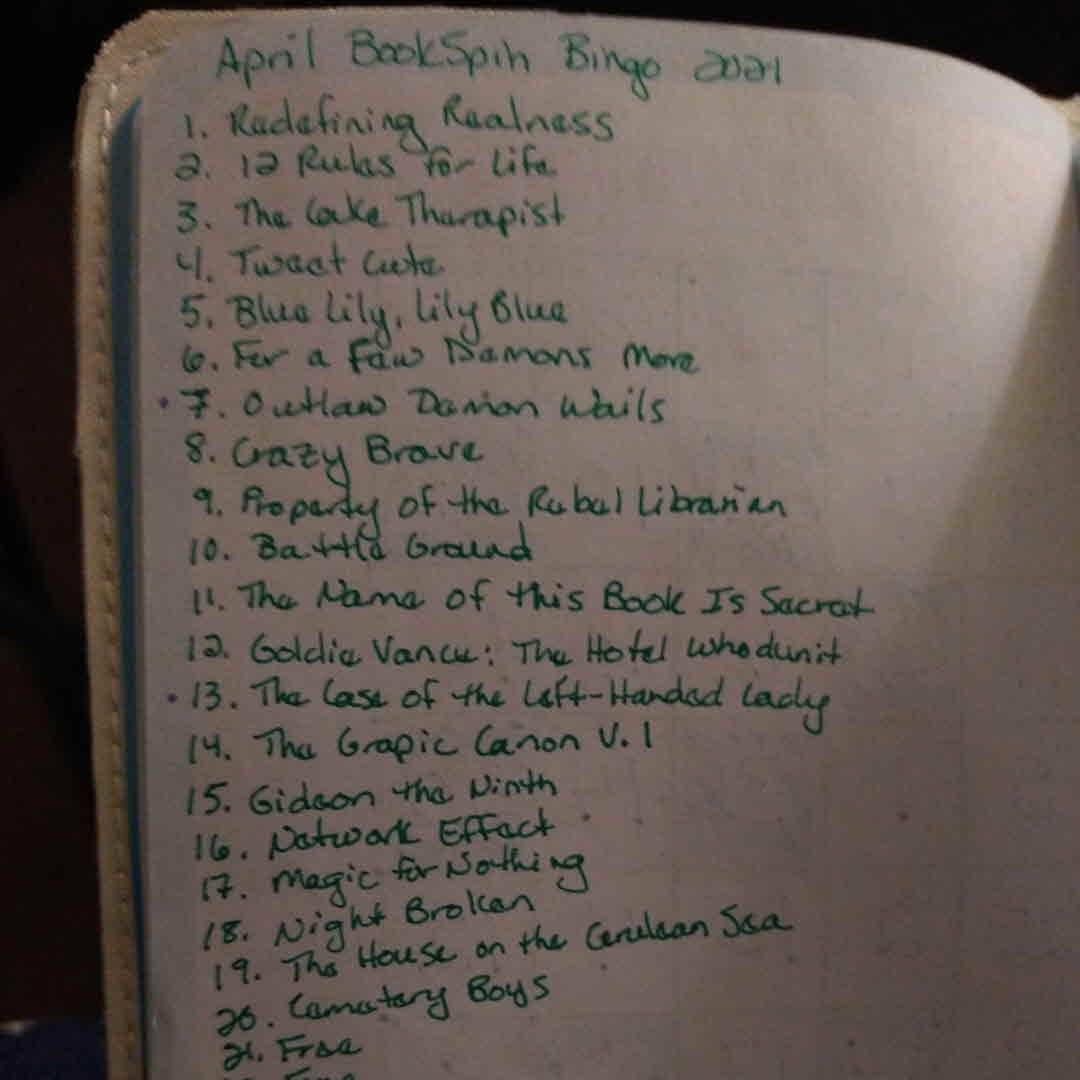 April BookSpin Bingo 2021
1. Redefining Realness
2. 12 Rules for Life
3. The Cake Therapist
4. Tweet Cute
5. Blue Lily, Lily Blue
6. For a Few Demons More
7. Outlaw Demon Wails
8. Crazy Brave
9. Property of the Rebel Librarian
10. Battle Ground
11. The Name of this Book Is Secret
12. Goldie Vance: The Hotel Whodunit
13. The Case of the Left-Handed Lady
14. The Grapic Canon V. 1
15. Gideon the Ninth
16. Network Effect
17. Magic for Nothing
18. Night Broken
19. The House on the Cerulean Sea
20. Cematery Boys
21. Free